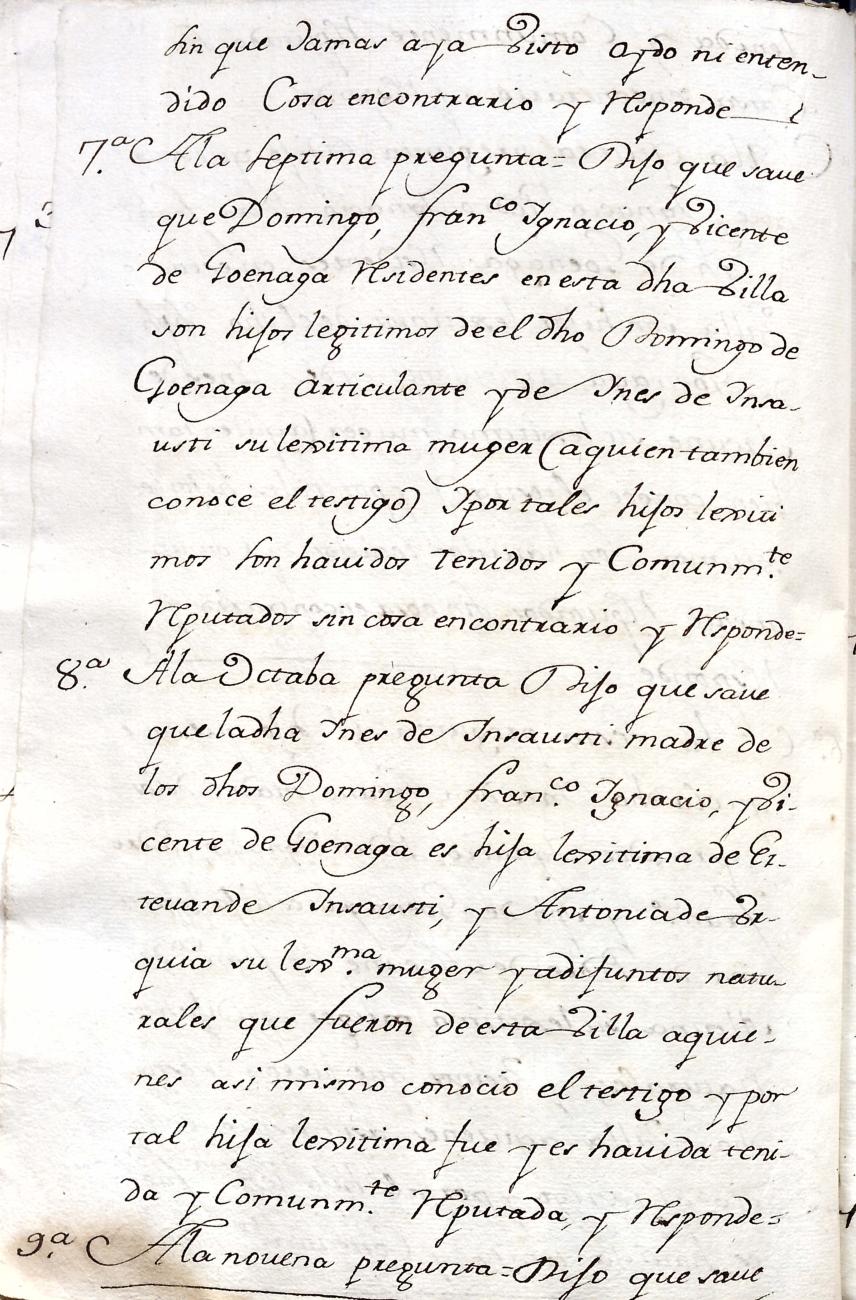 sin que Jamas aya Visto oydo ni enten-
dido Cosa encontrario y Responde
7.ª A la septima pregunta = Dijo que save
que Domingo, fran.co Ignacio, y Vicente
de Goenaga Residentes en esta dha Villa
son hijos legitimos de el dho Domingo de
Goenaga articulante y de Ines de Insa-
usti su lexitima muger (a quien tambien
conoce el testigo) Y por tales hijos lexiti
mos son havidos tenidos y Comunm.te
Reputados sin cosa encontrario y Responde=
8.ª A la Octaba pregunta Dijo que save
que la dha Ines de Insausti madre de
los dhos Domingo, fran.co Ignacio, y Vi-
cente de Goenaga es hija lexitima de Es-
tevan de Insausti, y Antonia de Vr-
quia su lex.ma muger ya difuntos natu-
rales que fueron de esta Villa a quie-
nes asi mismo conocio el testigo y por
tal hija lexitima fue y es havida teni-
da y Comunm.te Reputada, y Responde=
9.ª A la novena pregunta = Dijo que save